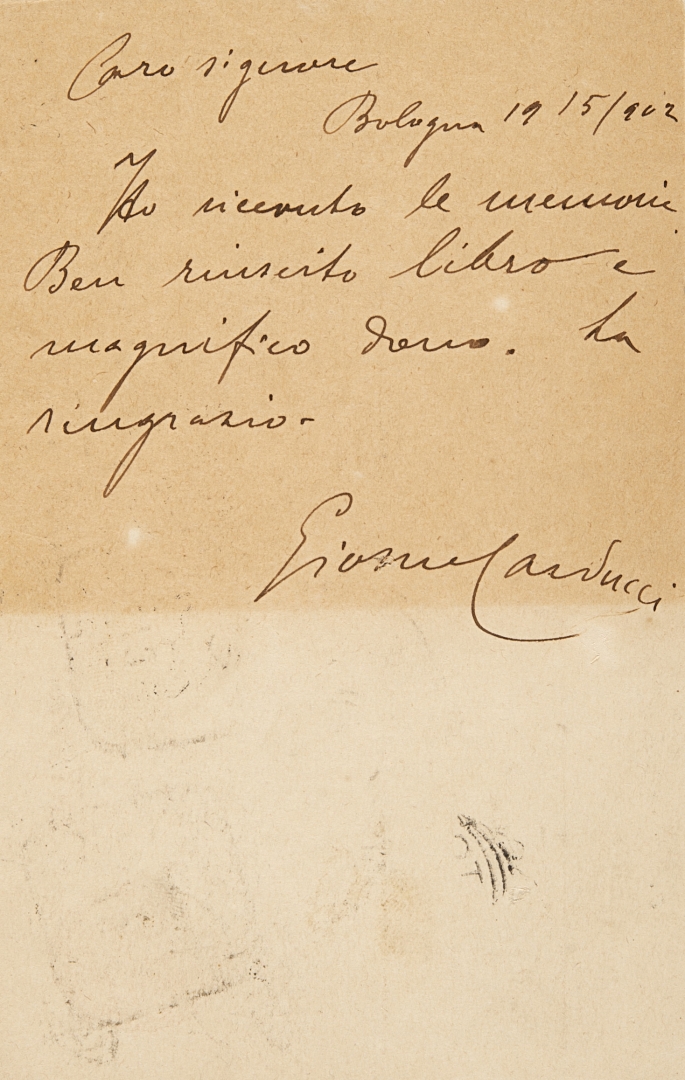 Caro signore
Bologna 19 15/902
Ho ricevuto le memorie.
Ben riuscito libro e
magnifico dono. La
ringrazio-
Giosue Carducci